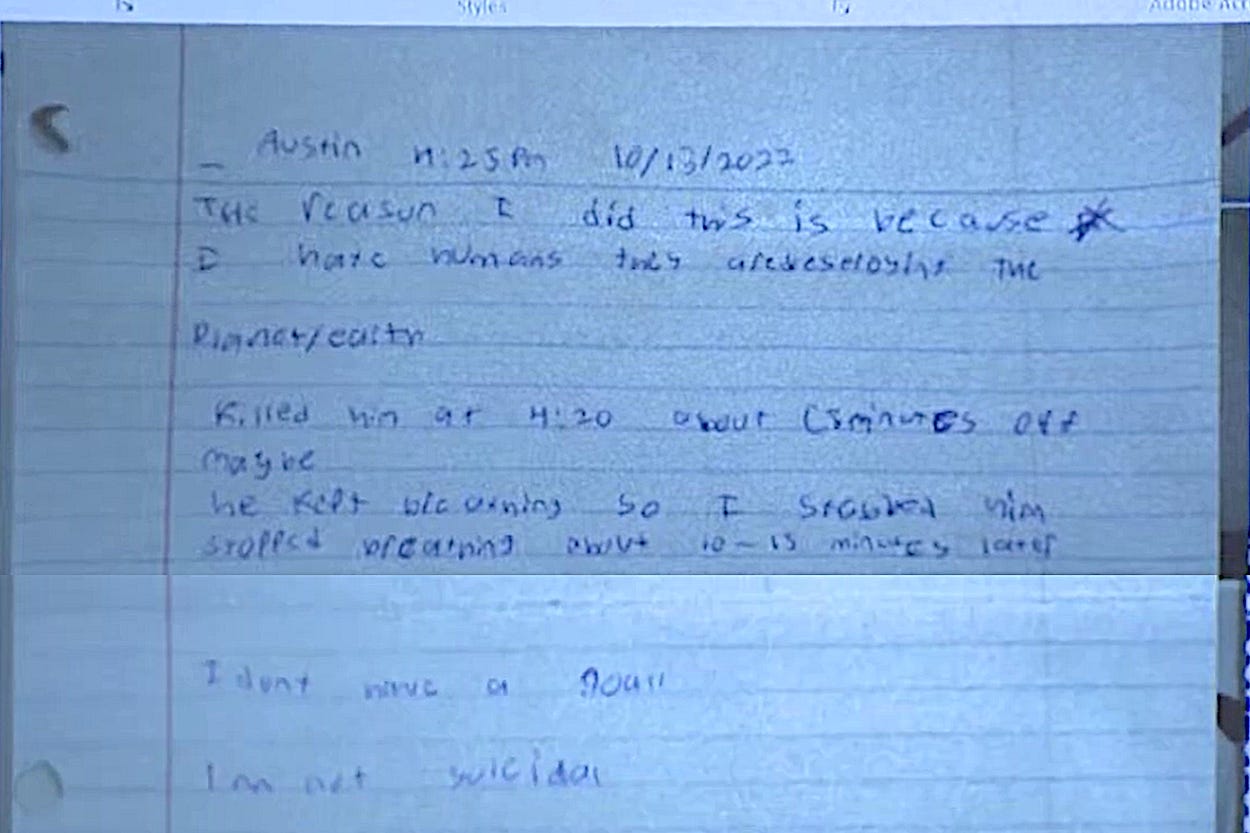 Styles
Adobe Acr
- Austin 4:25 Pm 10/13/2022
THE reason I did this is because
I hate humans they aredestroying THE
Planet/earth
Killed him at 4:20 about (5minutes off
maybe
he kept breathing so I stabbed him
stopped breathing about 10-15 minutes later
I dont have a
I m not suicidal